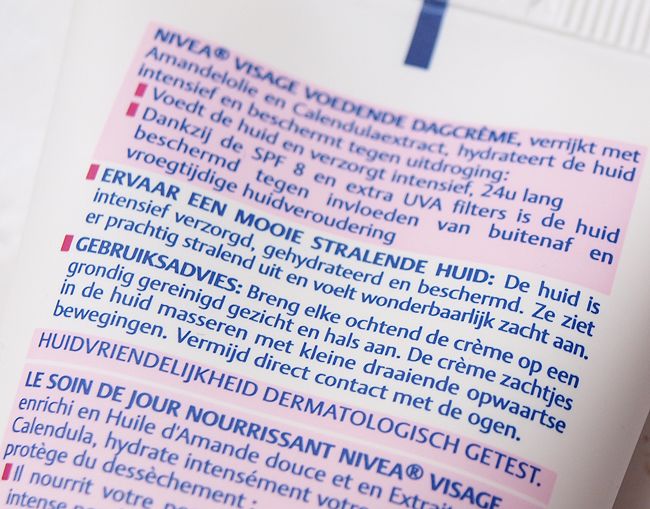 NIVEA® VISAGE VOEDENDE DAGCRÈME, verrijkt met
Amandelolie en Calendulaextract, hydrateert de huid
intensief en beschermt tegen uitdroging:
Voedt de huid en verzorgt intensief, 24u lang
Dankzij de SPF 8 en extra UVA filters is de huid
beschermd tegen invloeden van buitenaf en
vroegtijdige huidveroudering
ERVAAR EEN MOOIE STRALENDE HUID: De huid is
intensief verzorgd, gehydrateerd en beschermd. Ze ziet
er prachtig stralend uit en voelt wonderbaarlijk zacht aan.
GEBRUIKSADVIES: Breng elke ochtend de crème op een
grondig gereinigd gezicht en hals aan. De crème zachtjes
in de huid masseren met kleine draaiende opwaartse
bewegingen. Vermijd direct contact met de ogen.
HUIDVRIENDELIJKHEID DERMATOLOGISCH GETEST.
LE SOIN DE JOUR NOURRISSANT NIVEA® VISAGE
enrichi en Huile d'Amande douce et en Extrait
Calendula, hydrate intensément votre
protège du dessèchement :
Il nourrit votre
intense